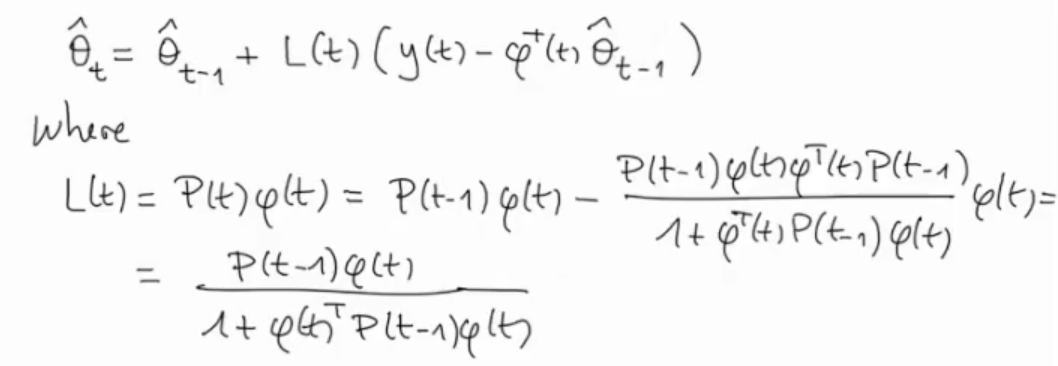 θ̂_t = θ̂_{t-1} + L(t) ( y(t) - φ^T(t) θ̂_{t-1} )
where
L(t) = P(t) φ(t) = P(t-1) φ(t) - \frac{P(t-1) φ(t) φ^T(t) P(t-1)}{1 + φ^T(t) P(t-1) φ(t)} φ(t) =
= \frac{P(t-1) φ(t)}{1 + φ(t)^T P(t-1) φ(t)}